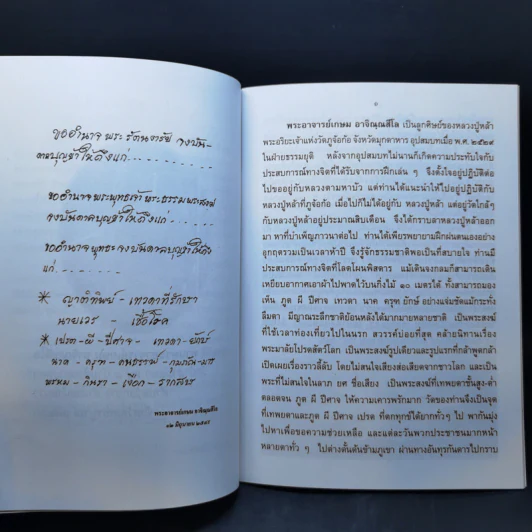 ขออำนาจ พระรัตนตรัย จงบัน-
ดาลบุญข้าให้ถึงแก่
ขออำนาจพระพุทธเจ้า พระธรรม พระสงฆ์
จงบันดาลบุญข้าให้ถึงแก่
ขออำนาจ พุทธะ จงบันดาลบุญข้าให้ถึง
แก่
* ญาติทิพย์ - เทวดาที่รักษา
นายเวร - เชื้อโรค
* เปรต - ผี - ปีศาจ - เทวดา - ยักษ์
นาค - ครุฑ - คนธรรพ์ - กุมภัณฑ์ - มาร
พรหม - กินรา - เงือก - รากษส
พระอาจารย์เกษม อาจิณฺณสีโล
๑๒ มิถุนายน
๕
พระอาจารย์เกษม อาจิณฺณสีโล เป็นลูกศิษย์ของหลวงปู่หล้า
พระอริยะเจ้าแห่งวัดภูจ้อก้อ จังหวัดมุกดาหาร อุปสมบทเมื่อ พ.ศ. ๒๕๒๙
ในฝ่ายธรรมยุติ หลังจากอุปสมบทไม่นานก็เกิดความประทับใจกับ
ประสบการณ์ทางจิตที่ได้รับจากการฝึกเล่น ๆ จึงตั้งใจอยู่ปฏิบัติต่อ
ไปขออยู่กับหลวงตามหาบัว แต่ท่านได้แนะนำให้ไปอยู่ปฏิบัติกับ
หลวงปู่หล้าที่ภูจ้อก้อ เมื่อไปก็ไม่ได้อยู่กับ หลวงปู่หล้า แต่อยู่วัดใกล้ๆ
กับหลวงปู่หล้าอยู่ประมาณสิบเดือน จึงได้กราบลาหลวงปู่หล้าออก
มา หาที่บำเพ็ญภาวนาต่อไป ท่านได้เพียรพยายามฝึกฝนตนเองอย่าง
อุกฤตรวมเป็นเวลาห้าปี จึงรู้จักธรรมชาติพอเป็นที่สบายใจ ท่านมี
ประสบการณ์ทางจิตที่โลดโผนพิสดาร แม้เดินจงกลมก็สามารถเดิน
เหยียบอากาศเอาผ้าไปพาดไว้บนกิ่งไม้ ๑๐ เมตรได้ ทั้งสามารถมอง
เห็น ภูต ผี ปีศาจ เทวดา นาค ครุฑ ยักษ์ อย่างแจ่มชัดแม้กระทั่ง
ลืมตา มีญาณระลึกชาติย้อนหลังได้มากมายหลายชาติ เป็นพระสงฆ์
ที่ใช้เวลาท่องเที่ยวไปในนรก สวรรค์บ่อยที่สุด คล้ายนิทานเรื่อง
พระมาลัยโปรดสัตว์โลก เป็นพระสงฆ์รูปเดียวและรูปแรกที่กล้าพูดกล้า
เปิดเผยเรื่องราวลี้ลับ โดยไม่สนใจเสียงส่อเสียดจากชาวโลก และเป็น
พระที่ไม่สนใจในลาภ ยศ ชื่อเสียง เป็นพระสงฆ์ที่เทพยดาชั้นสูง-ต่ำ
ตลอดจน ภูต ผี ปีศาจ ให้ความเคารพรักมาก วัดของท่านจึงเป็นจุด
ที่เทพยดาและภูต ผี ปีศาจ เปรต ที่ตกทุกข์ได้ยากทั่วๆ ไป พากันมุ่ง
ไปหาเพื่อขอความช่วยเหลือ และแต่ละวันพวกประชาชนมากหน้า
หลายตาทั่ว ๆ ไปต่างดั้นด้นข้ามภูเขา ผ่านทางอันทุรกันดารไปกราบ